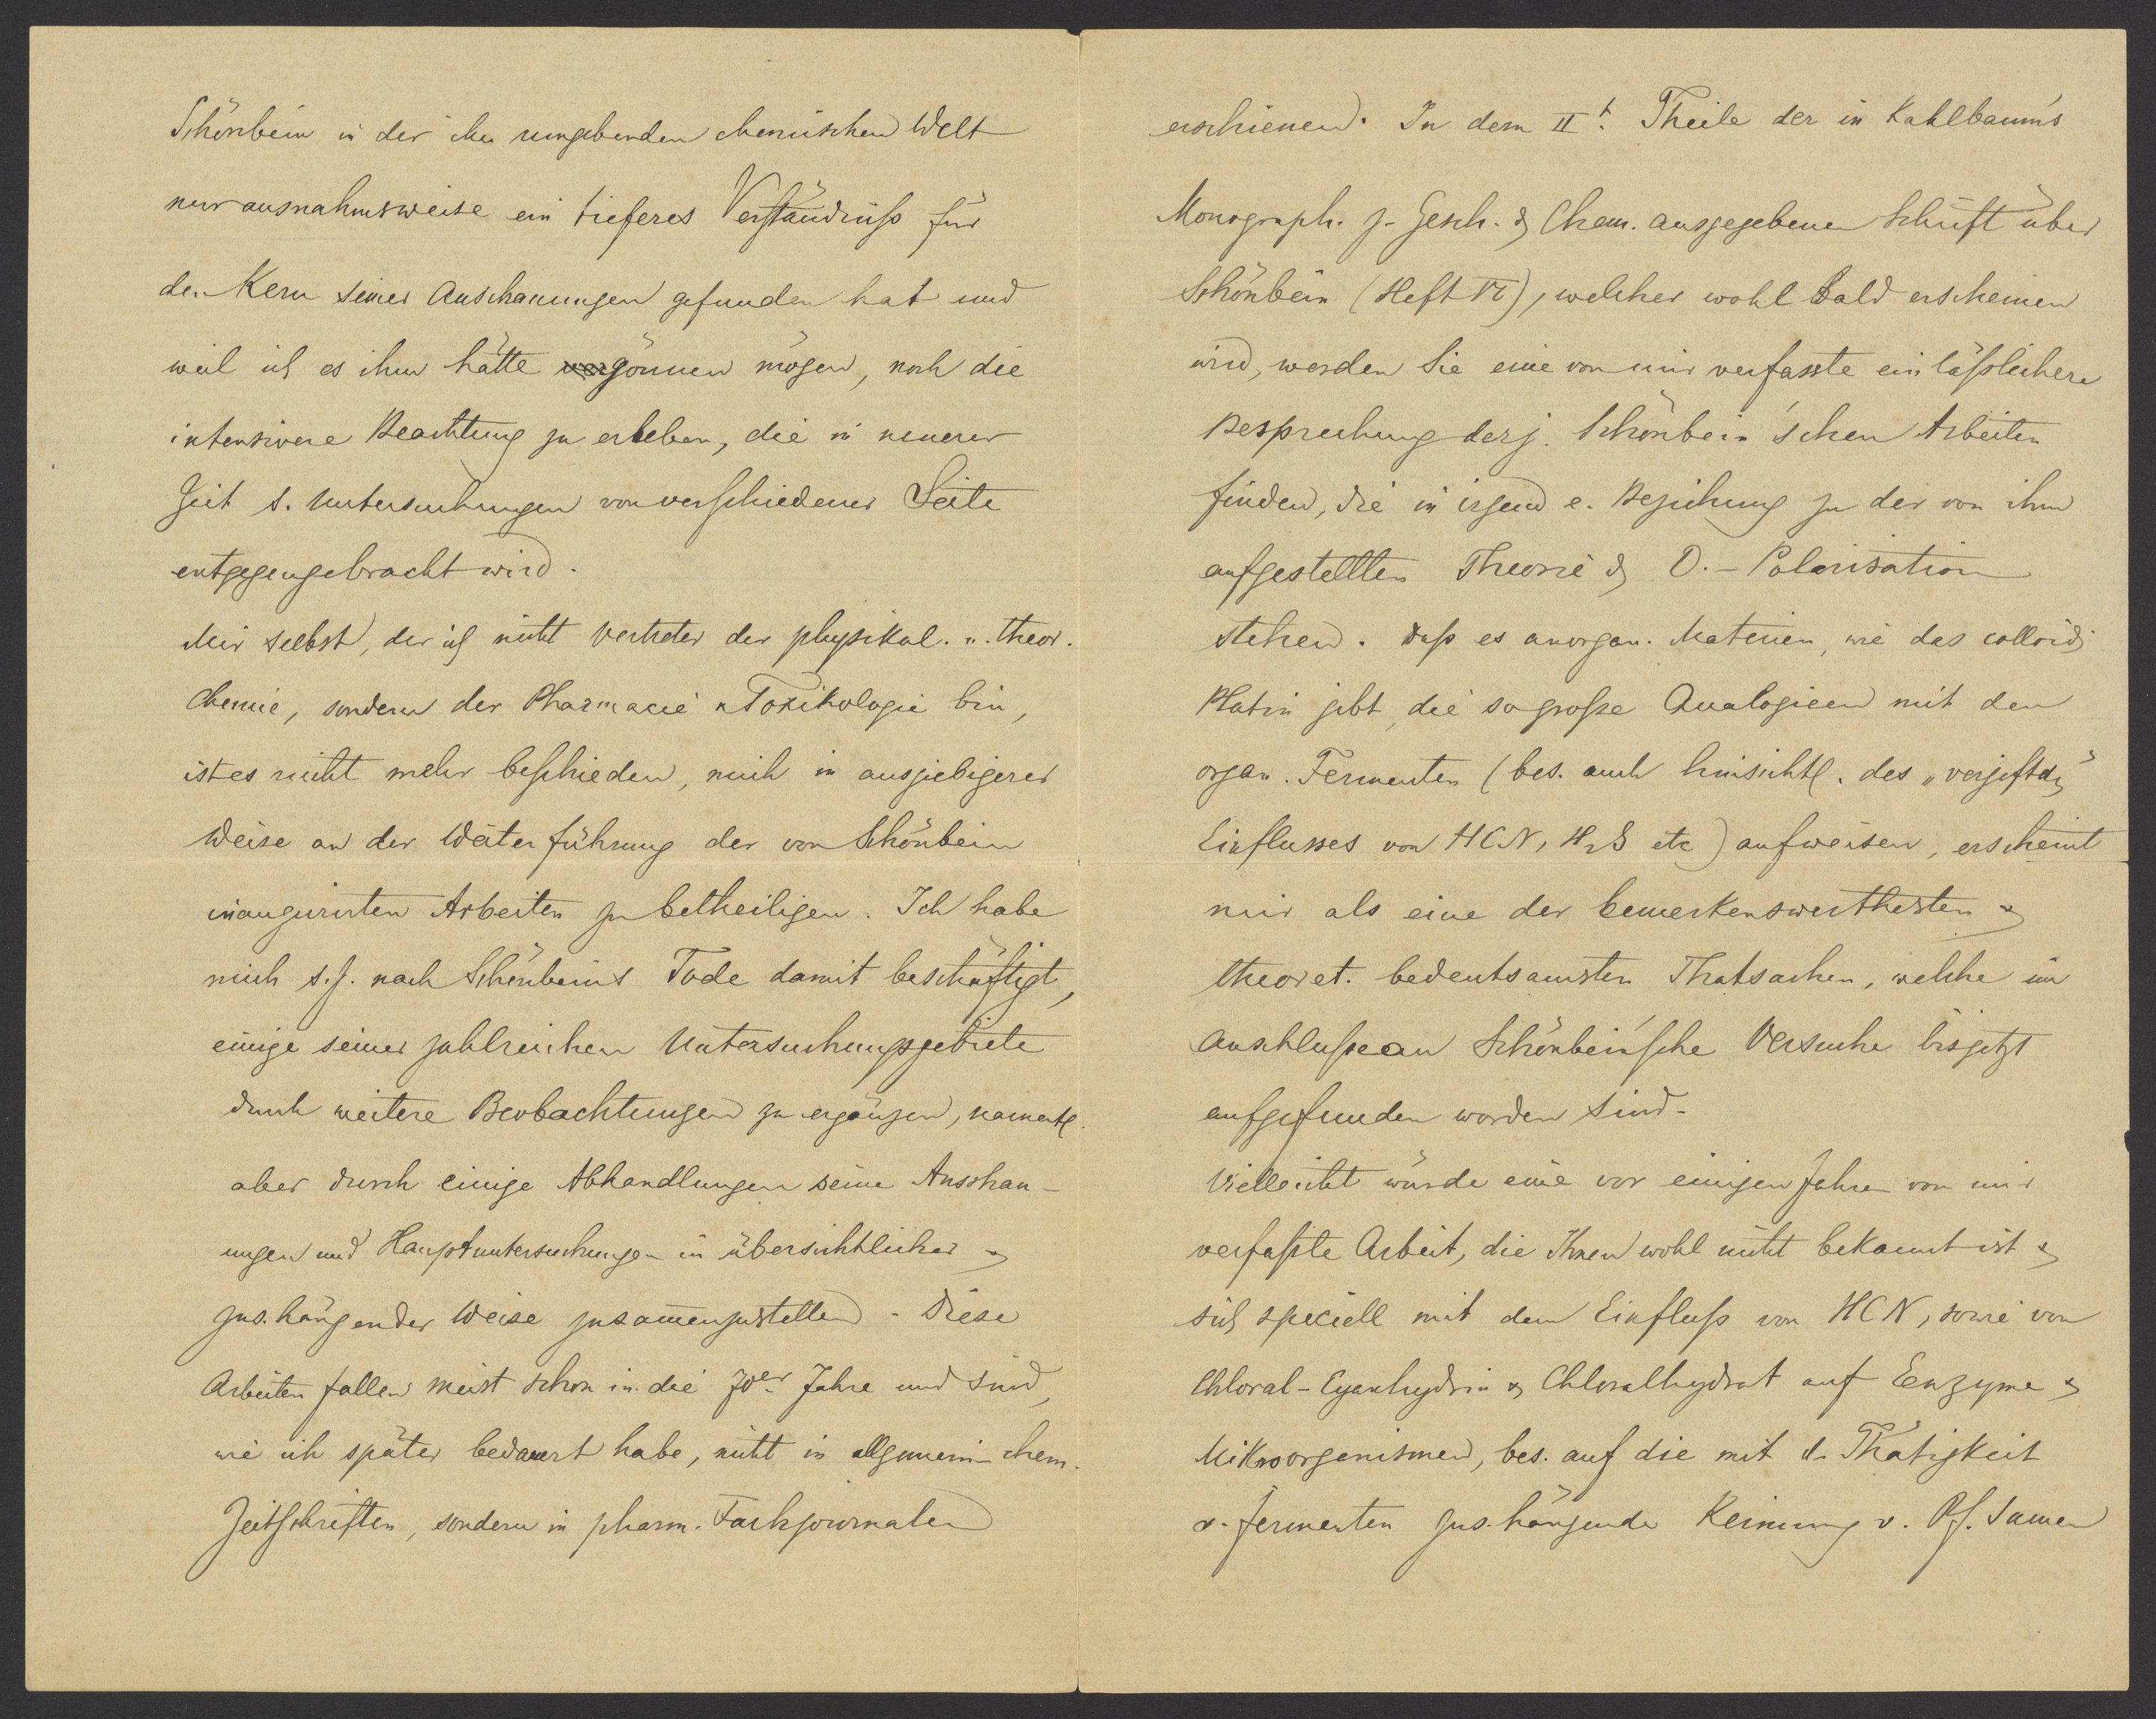 Schönbein in der ihn umgebenden chemischen Welt
nur ausnahmsweise ein tieferes Verständniss für
den Kern seiner Anschauungen gefunden hat und
weil ich es ihm hätte gönnen mögen, noch die
intensivere Beachtung zu erleben, die in neuerer
Zeit s. Untersuchungen von verschiedener Seite
entgegengebracht wird.
Mir selbst, der ich nicht Vertreter der physikal. u. theor.
Chemie, sondern der Pharmacie u Toxikologie bin,
ist es nicht mehr beschieden, mich in ausgiebigerer
Weise an der Weiterführung der von Schönbein
inaugurirten Arbeiten zu betheiligen. Ich habe
mich s. Z. nach Schönbeins Tode damit beschäftigt,
einige seiner zahlreichen Untersuchungsgebiete
durch weitere Beobachtungen zu ergänzen, namentl.
aber durch einige Abhandlungen seine Anschau-
ungen und Hauptuntersuchungen in übersichtlicher &
zus. hängender Weise zusam̅enzustellen. Diese
Arbeiten fallen meist schon in die 70er Jahre und sind,
wie ich später bedauert habe, nicht in allgemein-chem.
Zeitschriften, sondern in pharm. Fachjournalen
erschienen. In dem IIt. Theile der in Kahlbaum's
Monograph. z. Gesch. d. Chem. ausgegebenen Schrift über
Schönbein (Heft VI), welcher wohl bald erscheinen
wird, werden Sie eine von mir verfasste einlässlichere
Besprechung derj. Schönbein'schen Arbeiten
finden, die in irgend e. Beziehung zu der von ihm
aufgestellten Theorie d. O.-Polarisation
stehen. Dass es anorgan. Materien, wie das colloid.
Platin gibt, die so grosse Analogieen mit den
organ. Fermenten (bes. auch hinsichtl. des „vergiftdn"
Einflusses von HCN, H2S etc) aufweisen, erscheint
mir als eine der bemerkenswerthesten &
theoret. bedeutsamsten Thatsachen, welche im
Anschlusse an Schönbein'sche Versuche bis jetzt
aufgefunden worden sind.
Vielleicht würde eine vor einigen Jahren von mir
verfasste Arbeit, die Ihnen wohl nicht bekannt ist &
sich speciell mit dem Einfluss von HCN, sowie von
Chloral-Cyanhydrin & Chloralhydrat auf Enzyme &
Mikroorganismen, bes. auf die mit d. Thätigkeit
v. Fermenten zus. hängende Keimung v. Pf. Samen